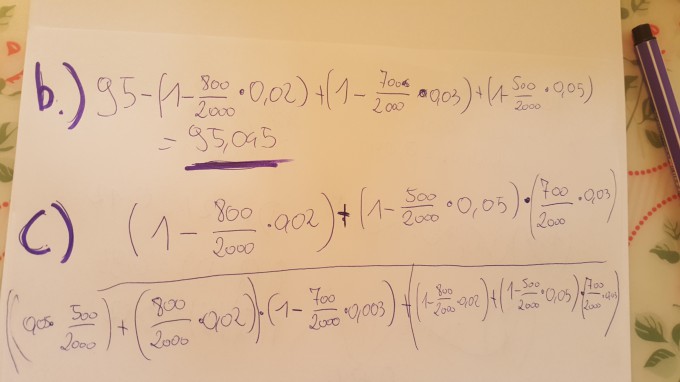 b.) 95-(1-800/2000·0,02)+(1-700/2000·0,03)+(1-500/2000·0,05)
= 95,045
c) (1-800/2000·0,02)+(1-500/2000·0,05)·(700/2000·0,03)
(0,05·500/2000)+(800/2000·0,02)·(1-700/2000·0,003)+((1-800/2000·0,02)+(1-500/2000·0,05)·700/2000·0,03)